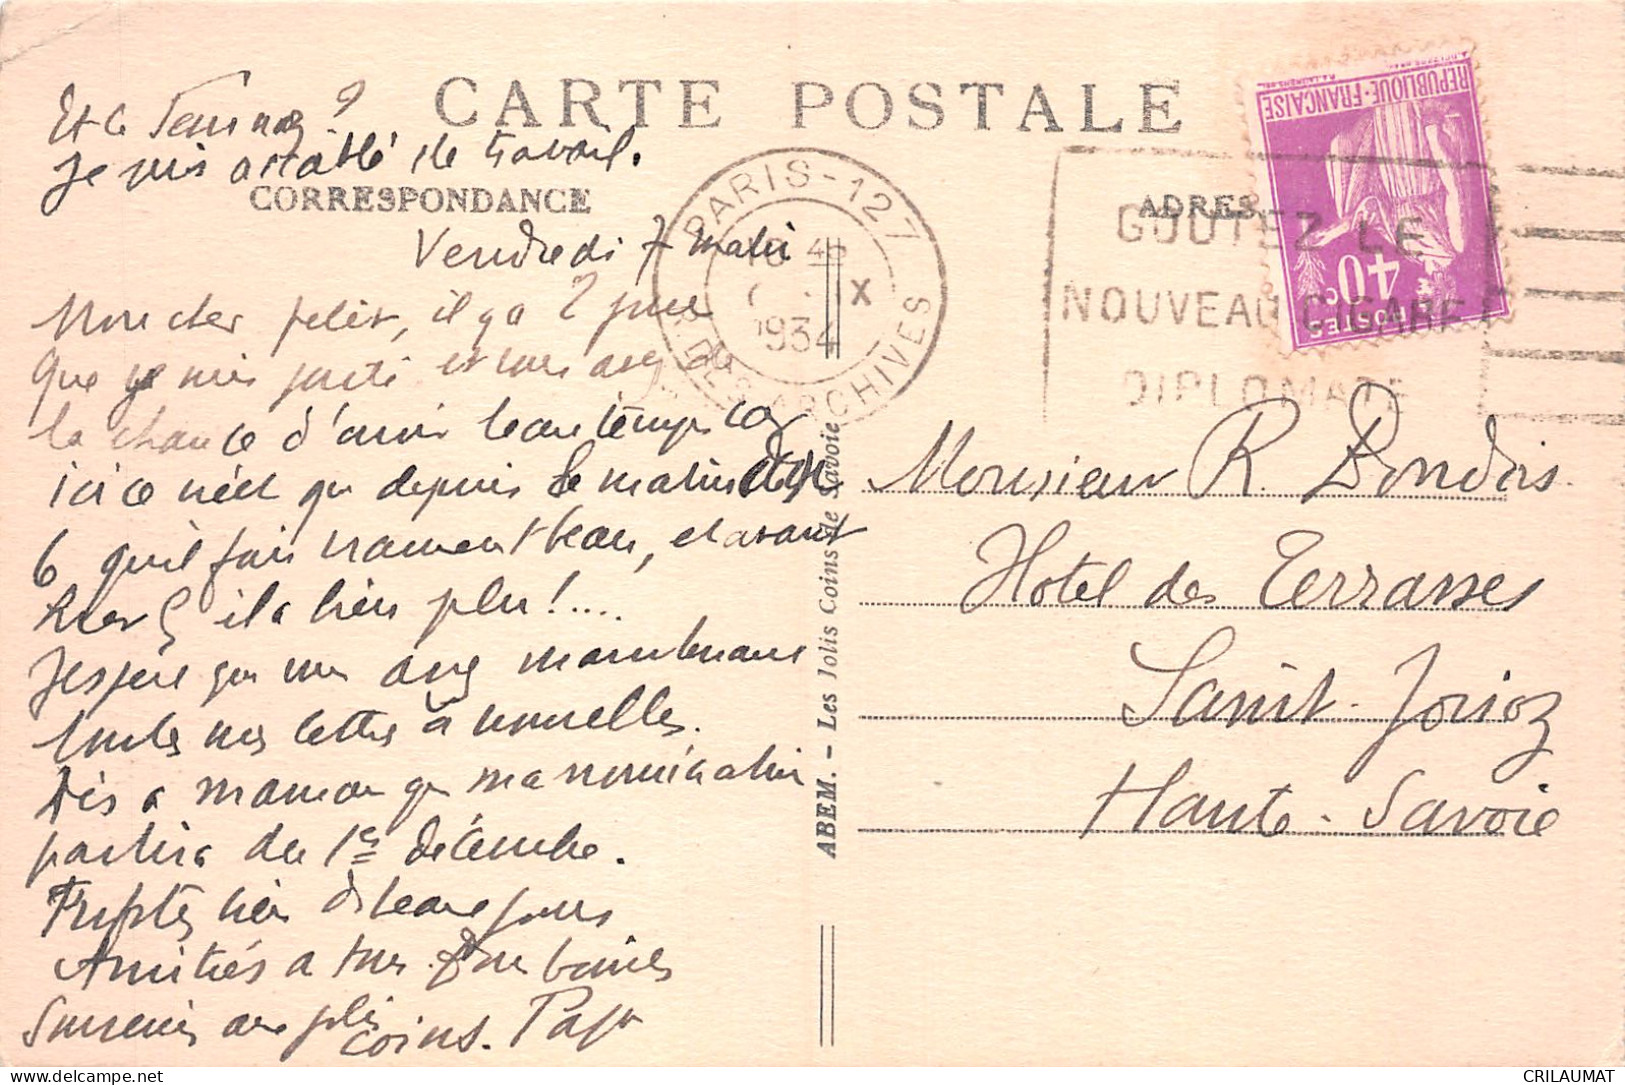 CARTE POSTALE
Et le
Je suis accablé de travail.
CORRESPONDANCE
Vendredi 7 Matin
Mon cher petit, il y a 2 jours
que je suis parti et vous avez de
la chance d'avoir beau temps car
ici ce n'est que depuis le matin
6 qu'il fait vraiment beau, et avant
hier 5 il a bien plu!...
J'espère que vous avez maintenant
toutes mes lettres & nouvelles.
Dis à maman que ma nomination
partira du 1er décembre.
Profitez bien des beaux jours
Amitiés à tous. bonnes
Souvenir aux jolis coins. Papa
PARIS-127
R. DES ARCHIVES
1934
ADRESSE
GOUTEZ LE
NOUVEAU CIGARE
DIPLOMATE
REPUBLIQUE·FRANÇAISE
40c
POSTES
Monsieur R. Dondois
Hôtel des Terrasses
Saint-Jorioz
Haute-Savoie
ABEM. - Les Jolis Coins de Savoie
CRILAUMAT